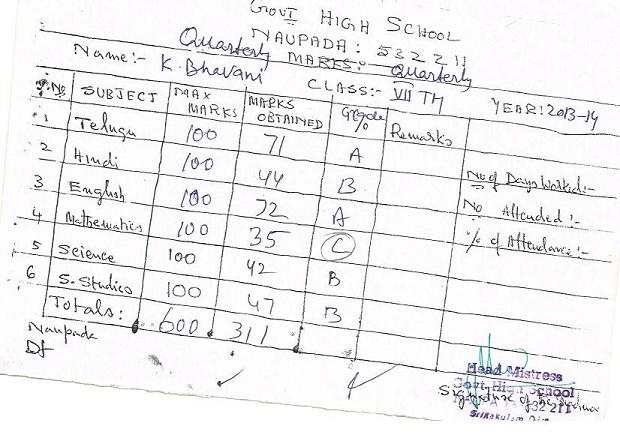 GOVT HIGH SCHOOL
NAUPADA: 532211
Quarterly MARKS:- Quarterly
Name:- K. Bhavani CLASS:- VII TH YEAR: 2013-14
S.No SUBJECT MAX MARKS MARKS OBTAINED Grade % Remarks
1 Telugu 100 71 A
2 Hindi 100 44 B
3 English 100 72 A
4 Mathematics 100 35 C
5 Science 100 42 B
6 S. Studies 100 47 B
Totals: 600 311
No of Days Worked:-
No Attended:-
% of Attendance:-
Naupada
Dt
Head Mistress
Govt. High School
532 211
Signature of the
Srikakulam Dist